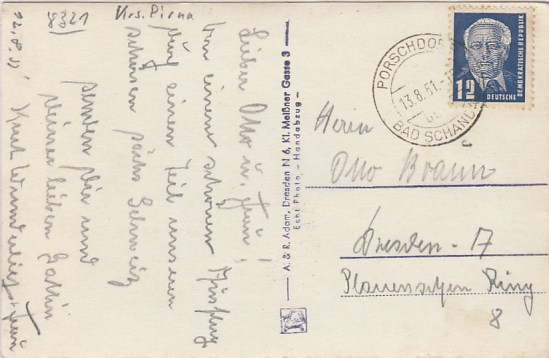 8321
Krs. Pirna
Lieber Otto u. Frau!
Von einem schönen Ausflug
durch einen Teil unserer
schönen sächs. Schweiz
senden Dir und
Deiner lieben Gattin
Kurt
A. & R. Adam, Dresden N 6, Kl. Meißner Gasse 3
Echt Photo – Handabzug –
PORSCHDO
13.8.51
BAD SCHAND
12
DEUTSCHE
DEMOKRATISCHE REPUBLIK
Herrn
Otto Braun
Dresden - 17
Plauenscher Ring
8